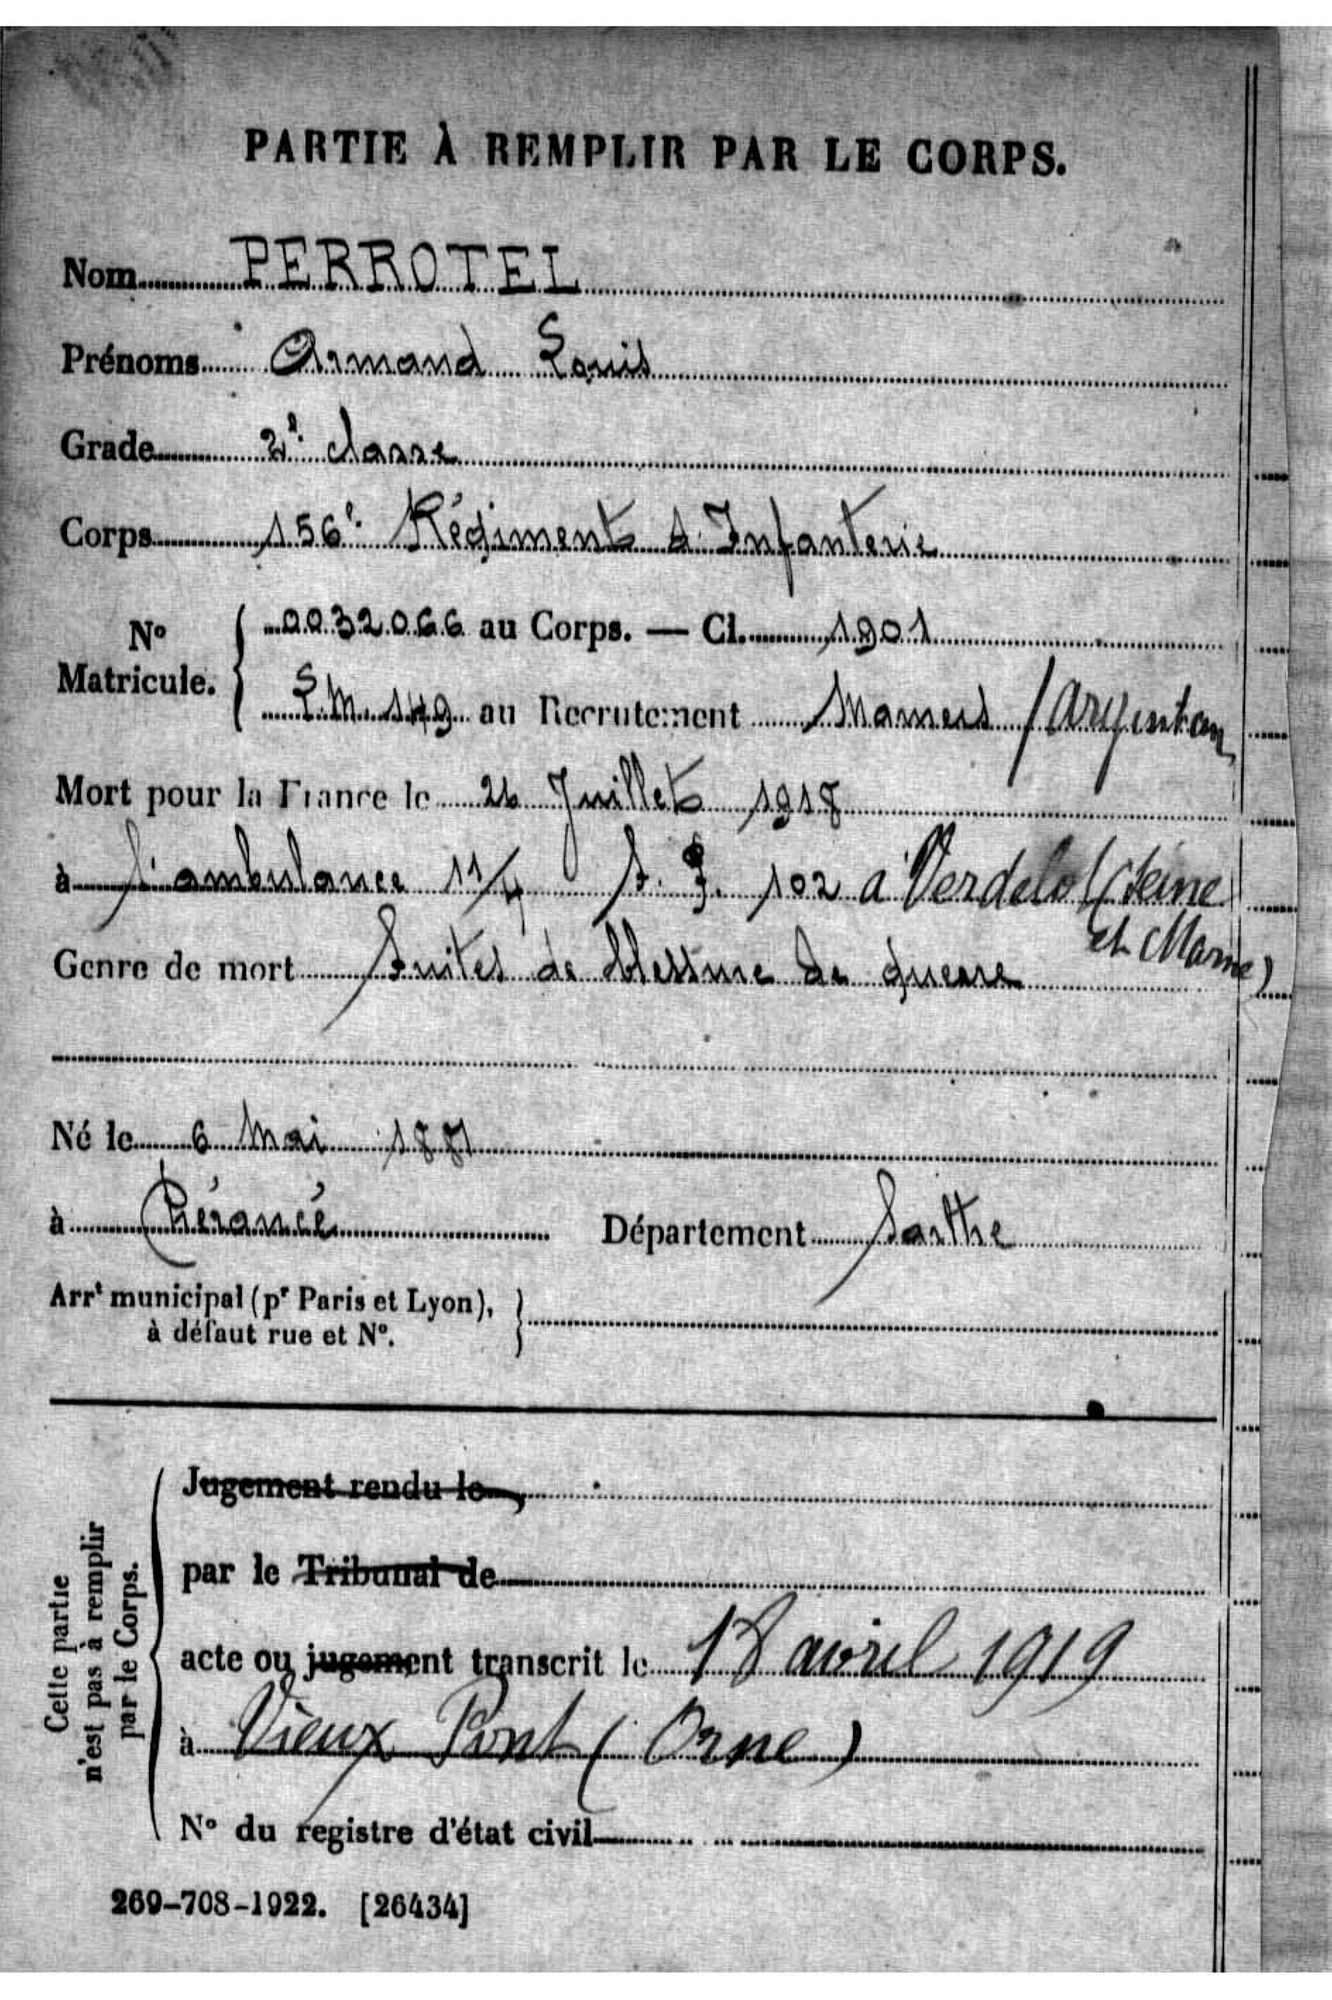 PARTIE À REMPLIR PAR LE CORPS.
Nom PERROTEL
Prénoms Armand Louis
Grade 2e classe
Corps 156e Régiment d'Infanterie
No Matricule. 0032066 au Corps. — Cl. 1901
L.M. 149 au Recrutement Mamers / Argentan
Mort pour la France le 26 Juillet 1918
à l'ambulance 11/4 S.P. 102 à Verdelot (Seine
et Marne)
Genre de mort Suites de blessure de guerre
Né le 6 Mai 1881
à Chérancé Département Sarthe
Arrt municipal (pr Paris et Lyon),
à défaut rue et No.
Cette partie
n'est pas à remplir
par le Corps.
Jugement rendu le
par le Tribunal de
acte ou jugement transcrit le 18 avril 1919
à Vieux Pont (Orne)
No du registre d'état civil
269-708-1922. [26434]